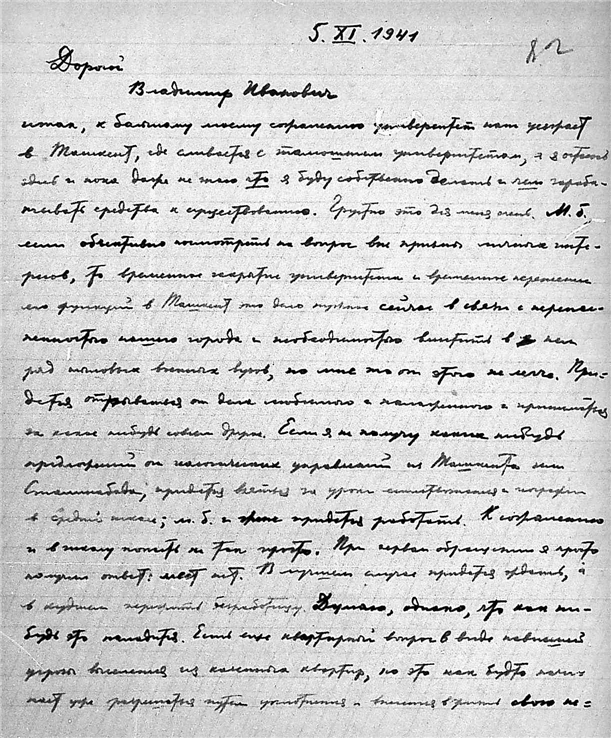 5.XI.1941
82
Дорогой
Владимир Иванович
итак, к большому моему сожалению университет наш уезжает
в Ташкент, где сливается с тамошним университетом, а я остаюсь
здесь и пока даже не знаю что я буду собственно делать и чем зараба-
тывать средства к существованию. Грустно это для меня очень. М.б.
если объективно посмотреть на вопрос вне призмы личных инте-
ресов, то временное закрытие университета и временное перенесение
его функций в Ташкент это дело нужное сейчас в связи с перенасе-
ленностью нашего города и необходимостью вместить в нем
ряд военных вузов, но мне то от этого не легче. При-
дется отрываться от дела любимого и налаженного и приниматься
за какое нибудь совсем другое. Если я не получу каких нибудь
предложений от геологических управлений из Ташкента или
Сталинабада, придется взяться за уроки естествознания и географии
в средней школе; м.б. и жене придется работать. К сожалению
и в школу попасть не так просто. При первом обращении я просто
получил ответ: мест нет. В лучшем случае придется ждать, а
в худшем пережить безработицу. Думаю, однако, что как ни-
будь это наладится. Есть еще квартирный вопрос в виде нависшей
угрозы выселения из казенных квартир, но это как будто начи-
нает уже разрешаться путем уплотнения и вселения в свою не-